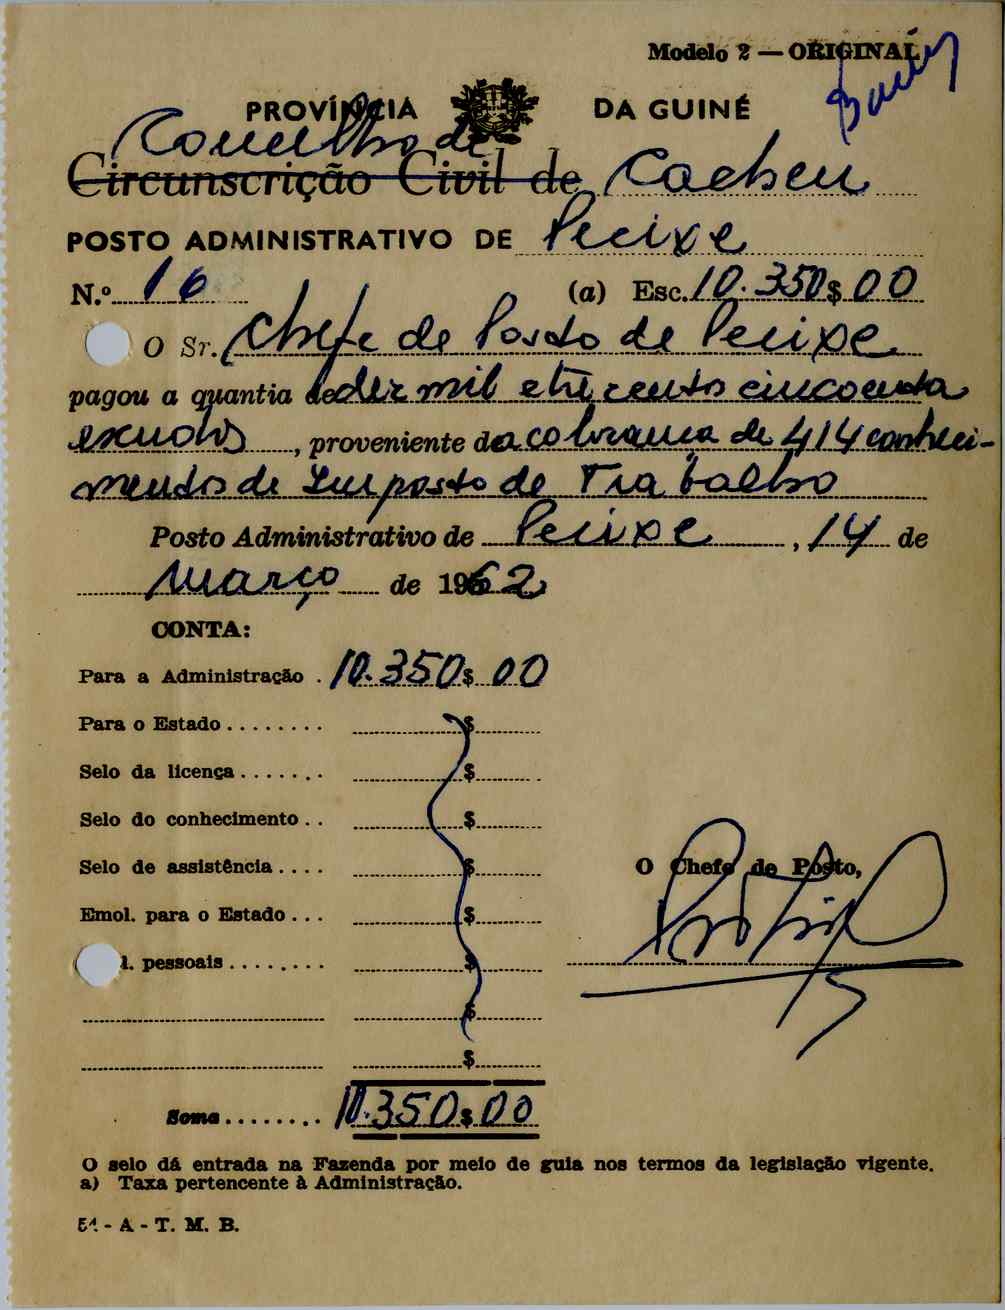 Modelo 2 — ORIGINAL
PROVÍNCIA DA GUINÉ
Concelho de
Circunscrição Civil de Cacheu
POSTO ADMINISTRATIVO DE Pecixe
N.º 16 (a) Esc. 10.350$00
O Sr. Chefe de Posto de Pecixe
pagou a quantia de dez mil e trezentos cincoenta
escudos, proveniente da cobrança de 414 conheci-
mentos de Imposto de Trabalho
Posto Administrativo de Pecixe, 14 de
Março de 1962
CONTA:
Para a Administração . 10.350$00
Para o Estado ........ $
Selo da licença ....... $
Selo do conhecimento .. $
Selo de assistência .... $
O Chefe de Posto,
Emol. para o Estado ... $
l. pessoais ........ $
$
$
Soma ........ 10.350$00
O selo dá entrada na Fazenda por meio de guia nos termos da legislação vigente.
a) Taxa pertencente à Administração.
54 - A - T. M. B.